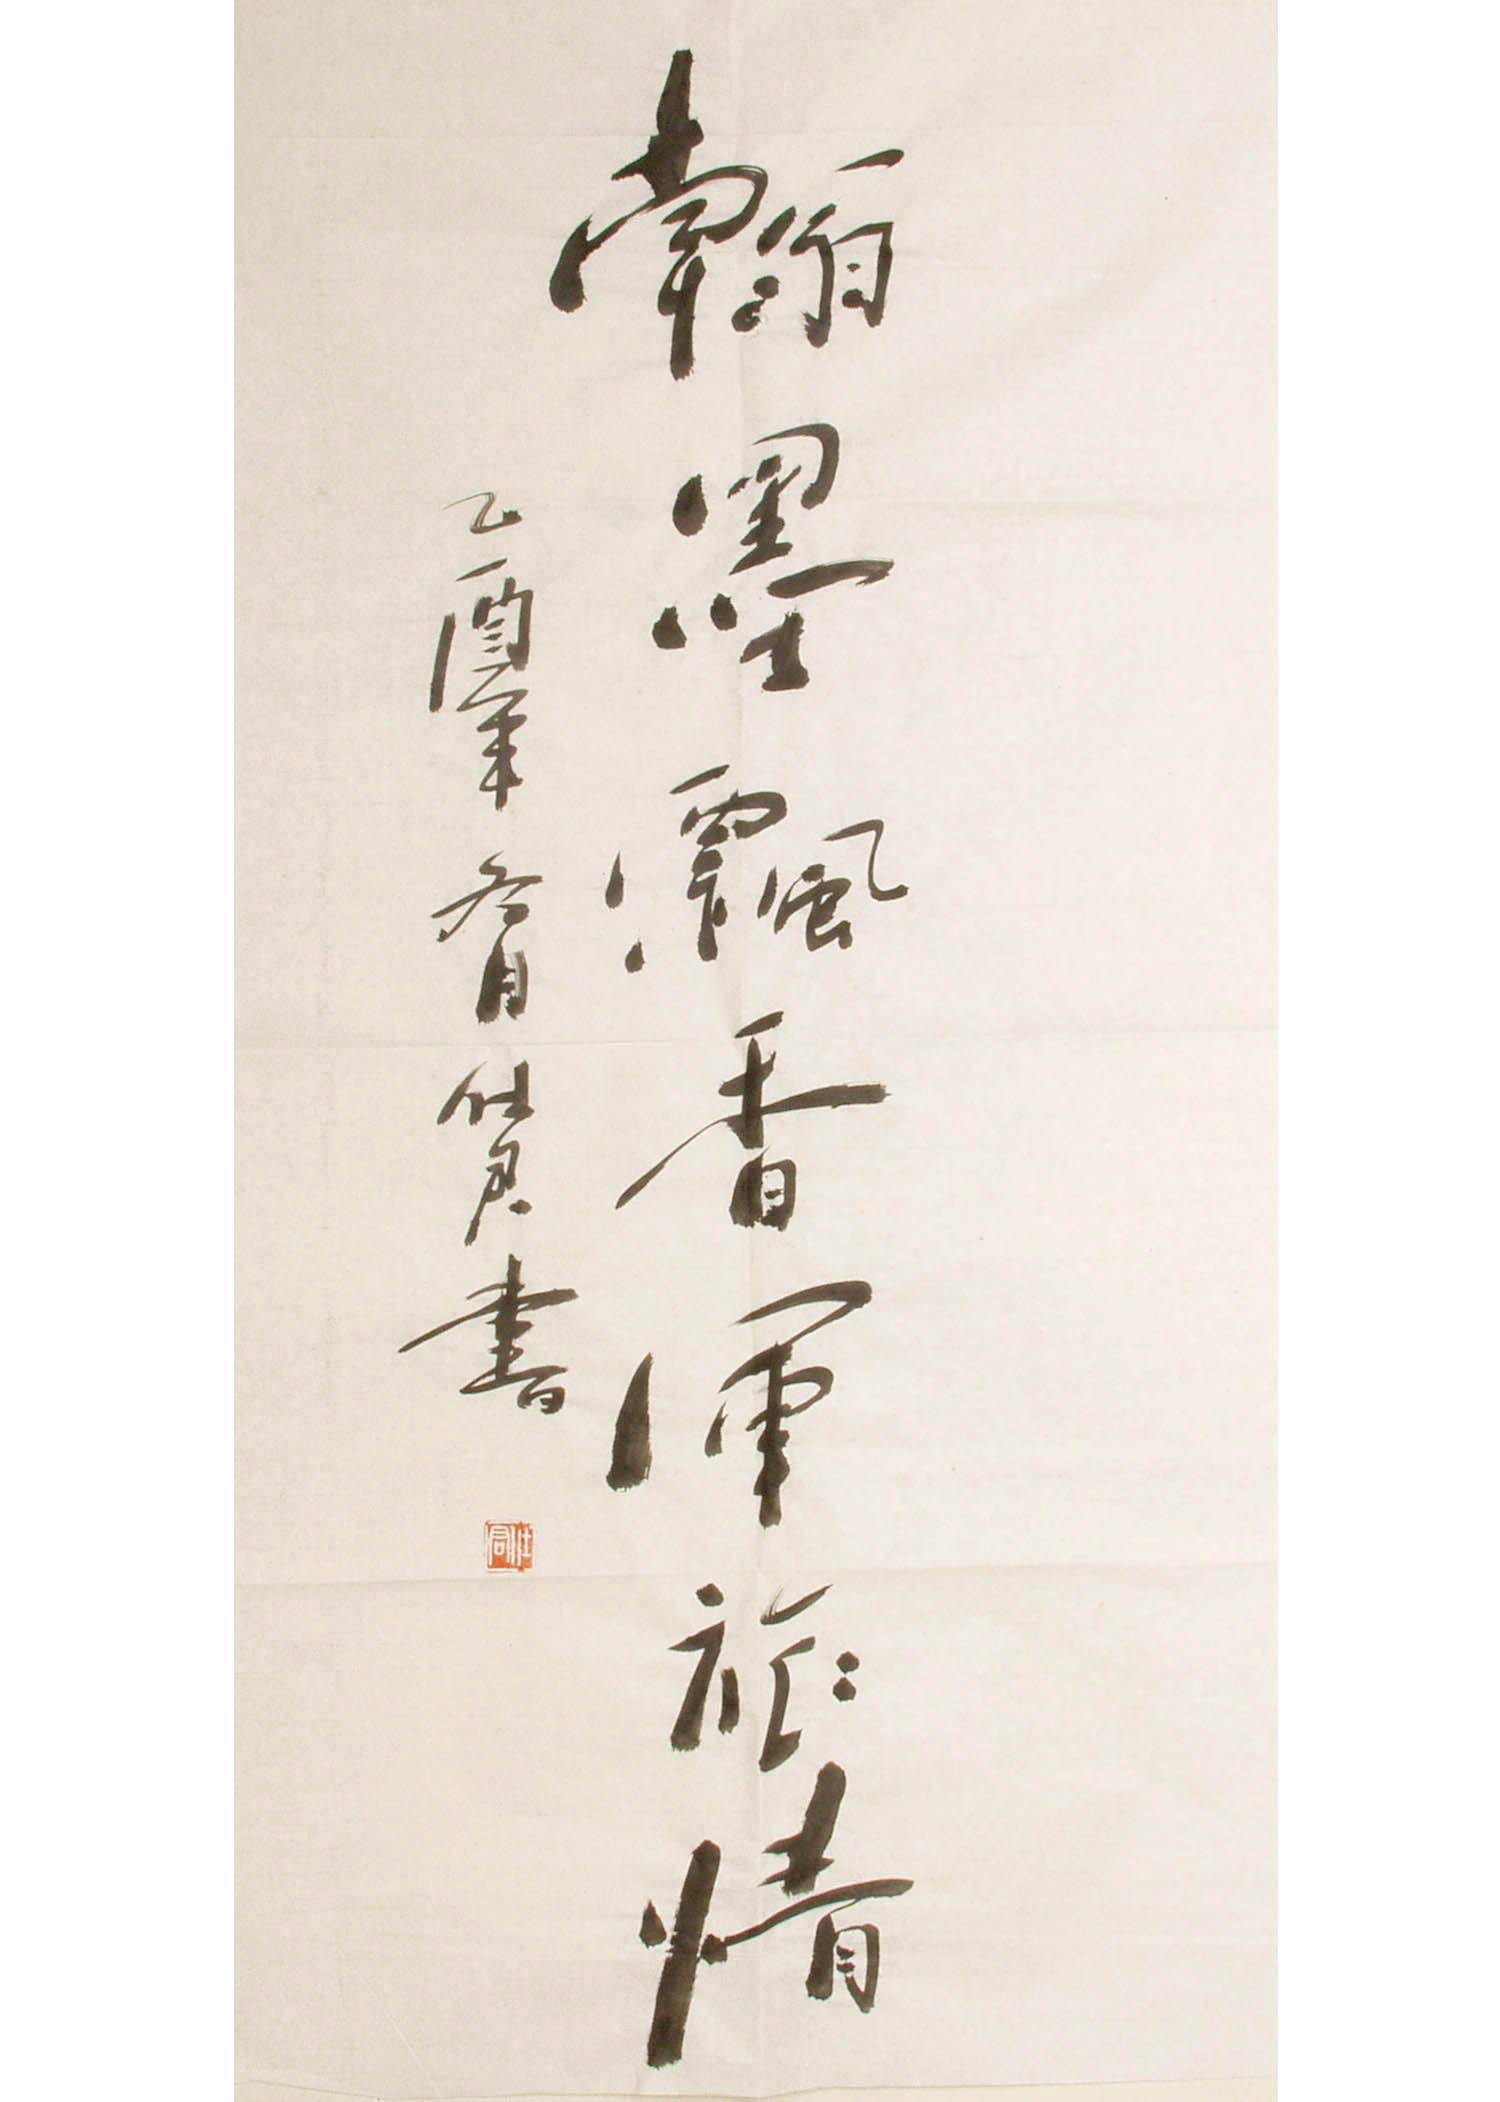 翰墨飄香軍旅情
乙酉年冬月
書